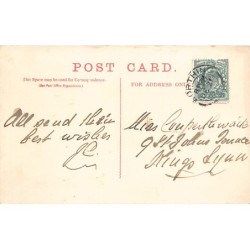 POST CARD.
This Space may be used for Correspondence.
(See Post Office Regulations.)
FOR ADDRESS ONLY
All send their
best wishes
J.C.
Miss Couperthwaite
9 St Johns Terrace
Kings Lynn